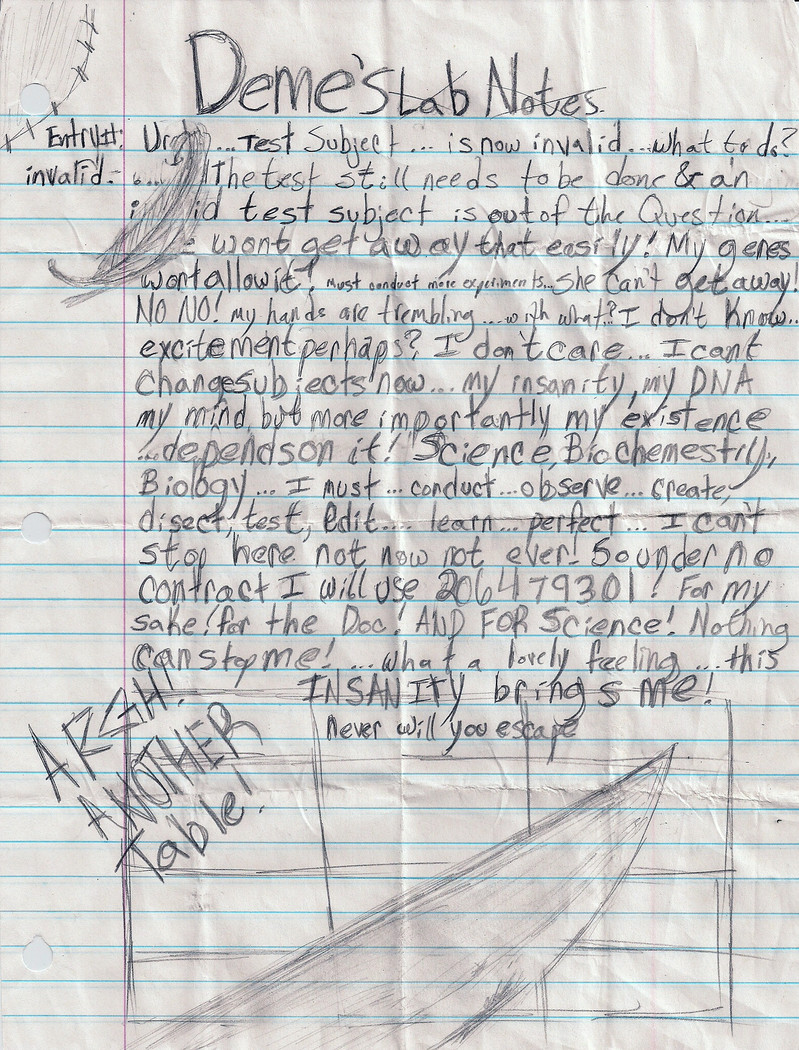 Deme's Lab Notes.
Entry II: ...Test Subject... is now invalid...what to do?
invalid - The test still needs to be done & an
test subject is out of the Question....
wont get away that easily! My genes
wont allow it! must conduct more experiments... She can't get away!
NO NO! my hands are trembling....with what? I don't know...
excitement perhaps? I don't care... I cant
change subjects now... my insanity, my DNA
my mind, but more importantly my existence
...depends on it! Science, Biochemestry,
Biology... I must... conduct...observe... create,
disect, test, Edit.... learn... perfect... I can't
stop here not now not ever! So under no
contract I will use 206479301! For my
sake! for the Doc! AND FOR Science! Nothing
can stop me! ...what a lovely feeling ...this
INSANITY brings me!
never will you escape
ARGH!
ANOTHER
Table!